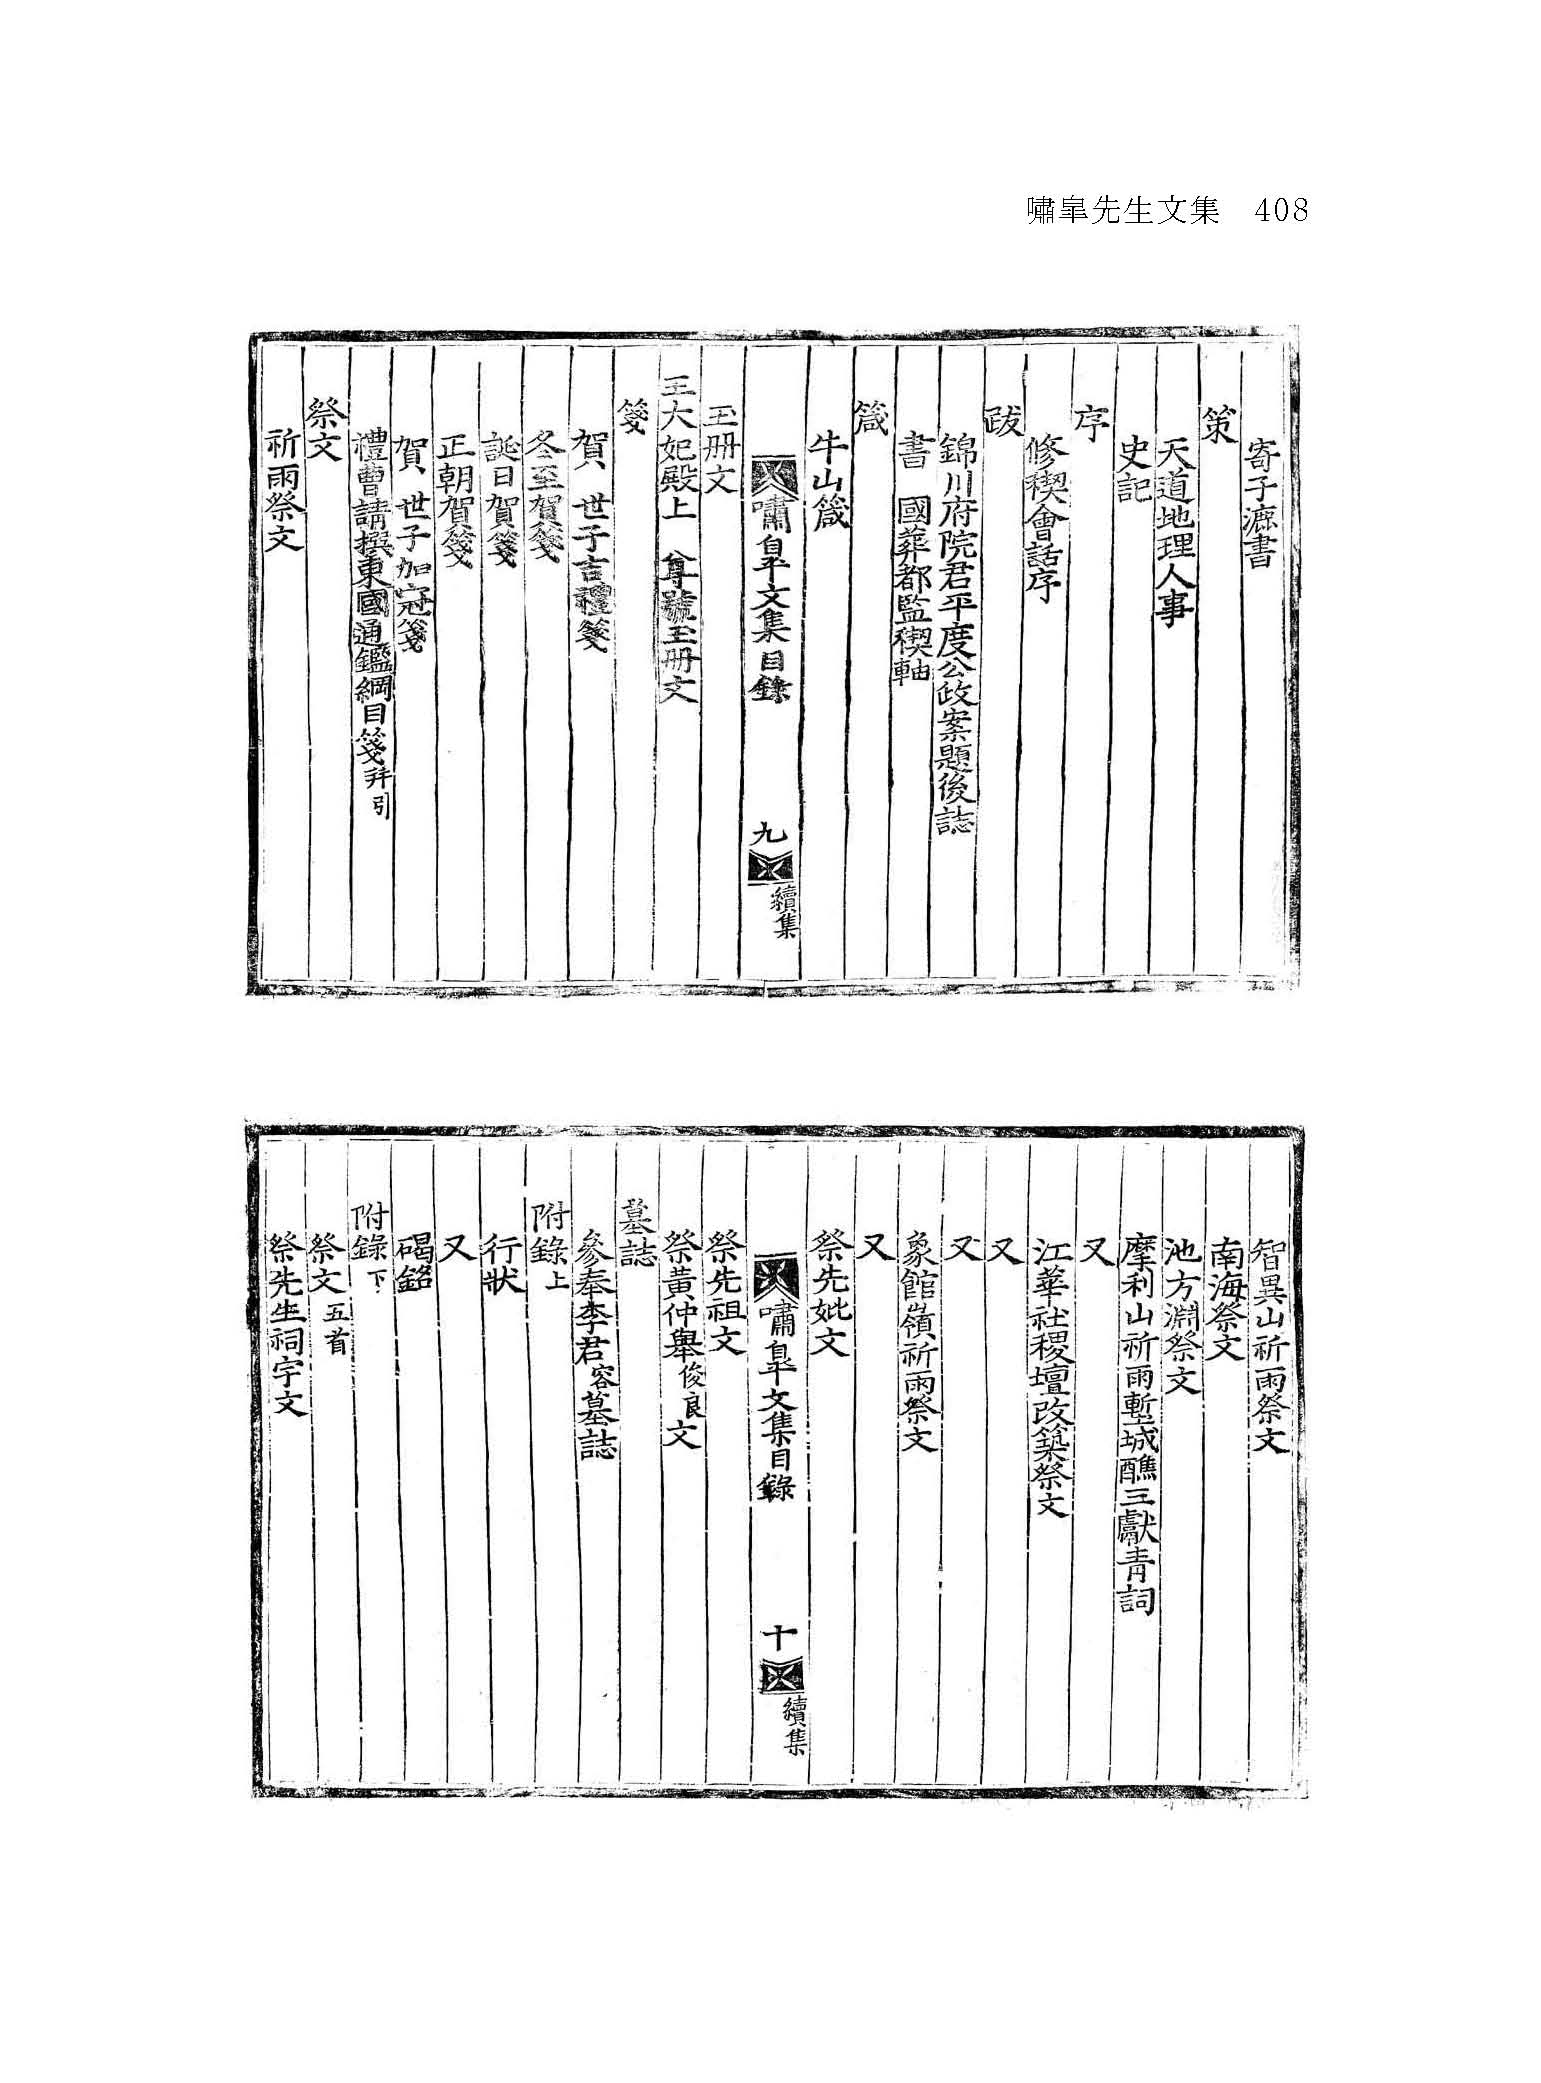 嘯皐先生文集 408
寄子漉書
策
天道地理人事
史記
序
修禊會話序
跋
錦川府院君平度公政案題後誌
書 國葬都監禊軸
箴
牛山箴
嘯皐文集目錄 九 續集
玉册文
王大妃殿上 尊號玉册文
箋
賀 世子吉禮箋
冬至賀箋
誕日賀箋
正朝賀箋
賀 世子加冠箋
禮曹請撰東國通鑑綱目箋幷引
祭文
祈雨祭文
智異山祈雨祭文
南海祭文
池方淵祭文
摩利山祈雨塹城醮三獻靑詞
又
江華社稷壇改築祭文
又
又
象館嶺祈雨祭文
又
祭先妣文
嘯皐文集目錄 十 續集
祭先祖文
祭黃仲擧俊良文
墓誌
參奉李君容墓誌
附錄上
行狀
又
碣銘
附錄下
祭文五首
祭先生祠宇文